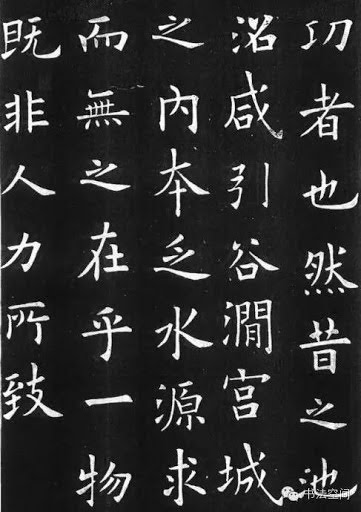 功者也然昔之池
沼咸引谷澗宮城
之內本乏水源求
而無之在乎一物
既非人力所致
书法空间